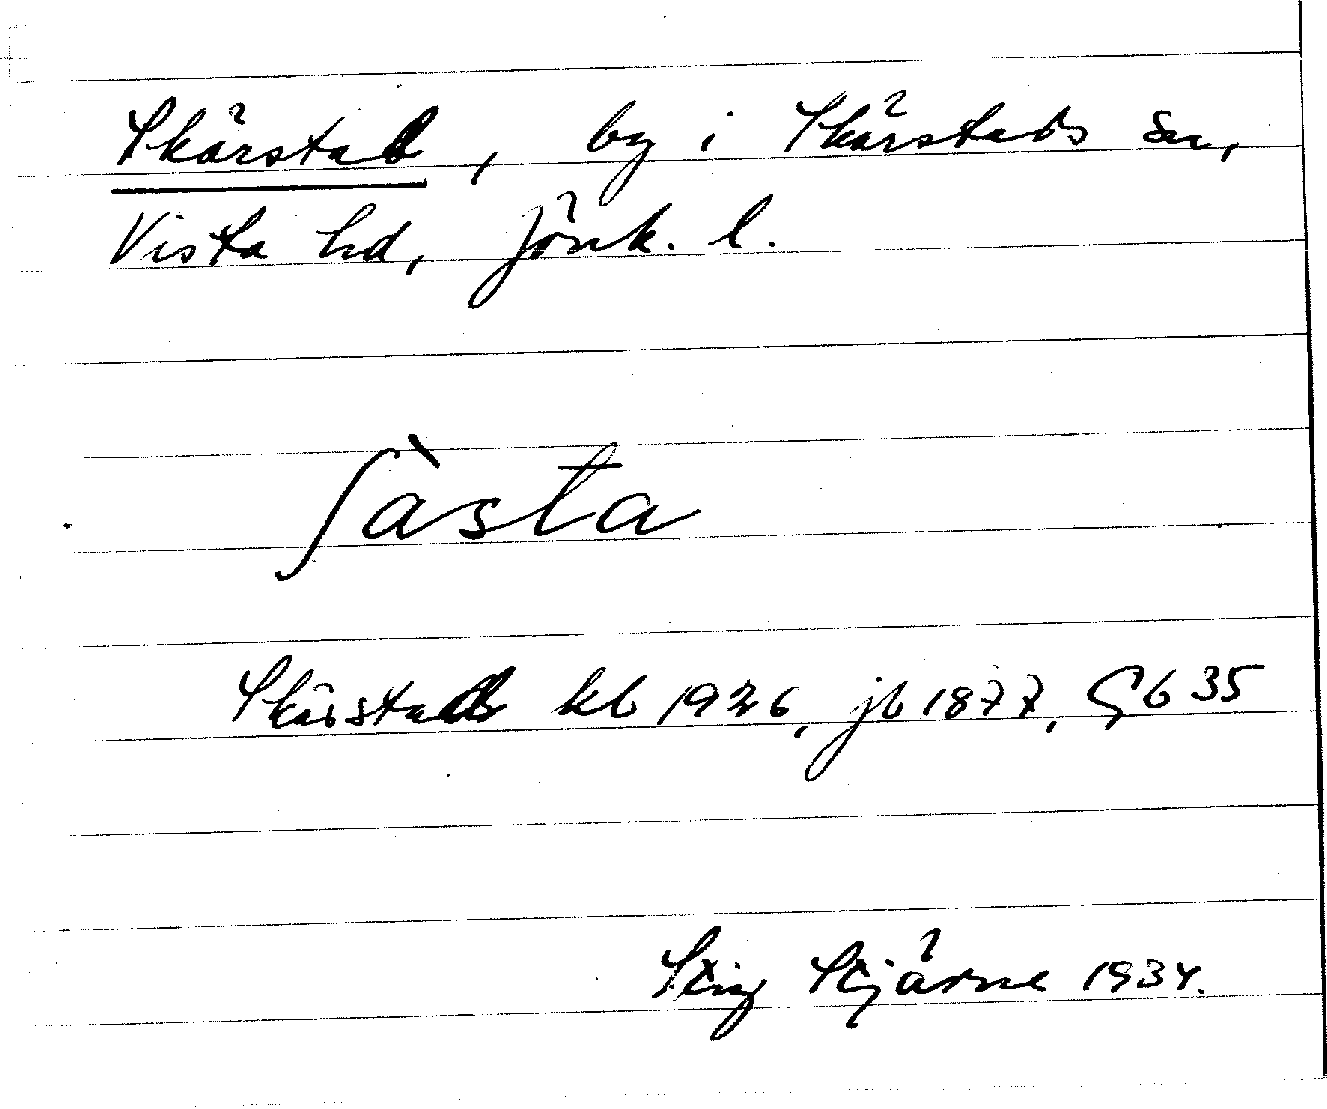 Skärstad, by i Skärstads sn,
Vista hd, Jönk. l.
ʃàsta
Skärstads kb 1926, jb 1877, Gb 35
Stig Stjärne 1934.